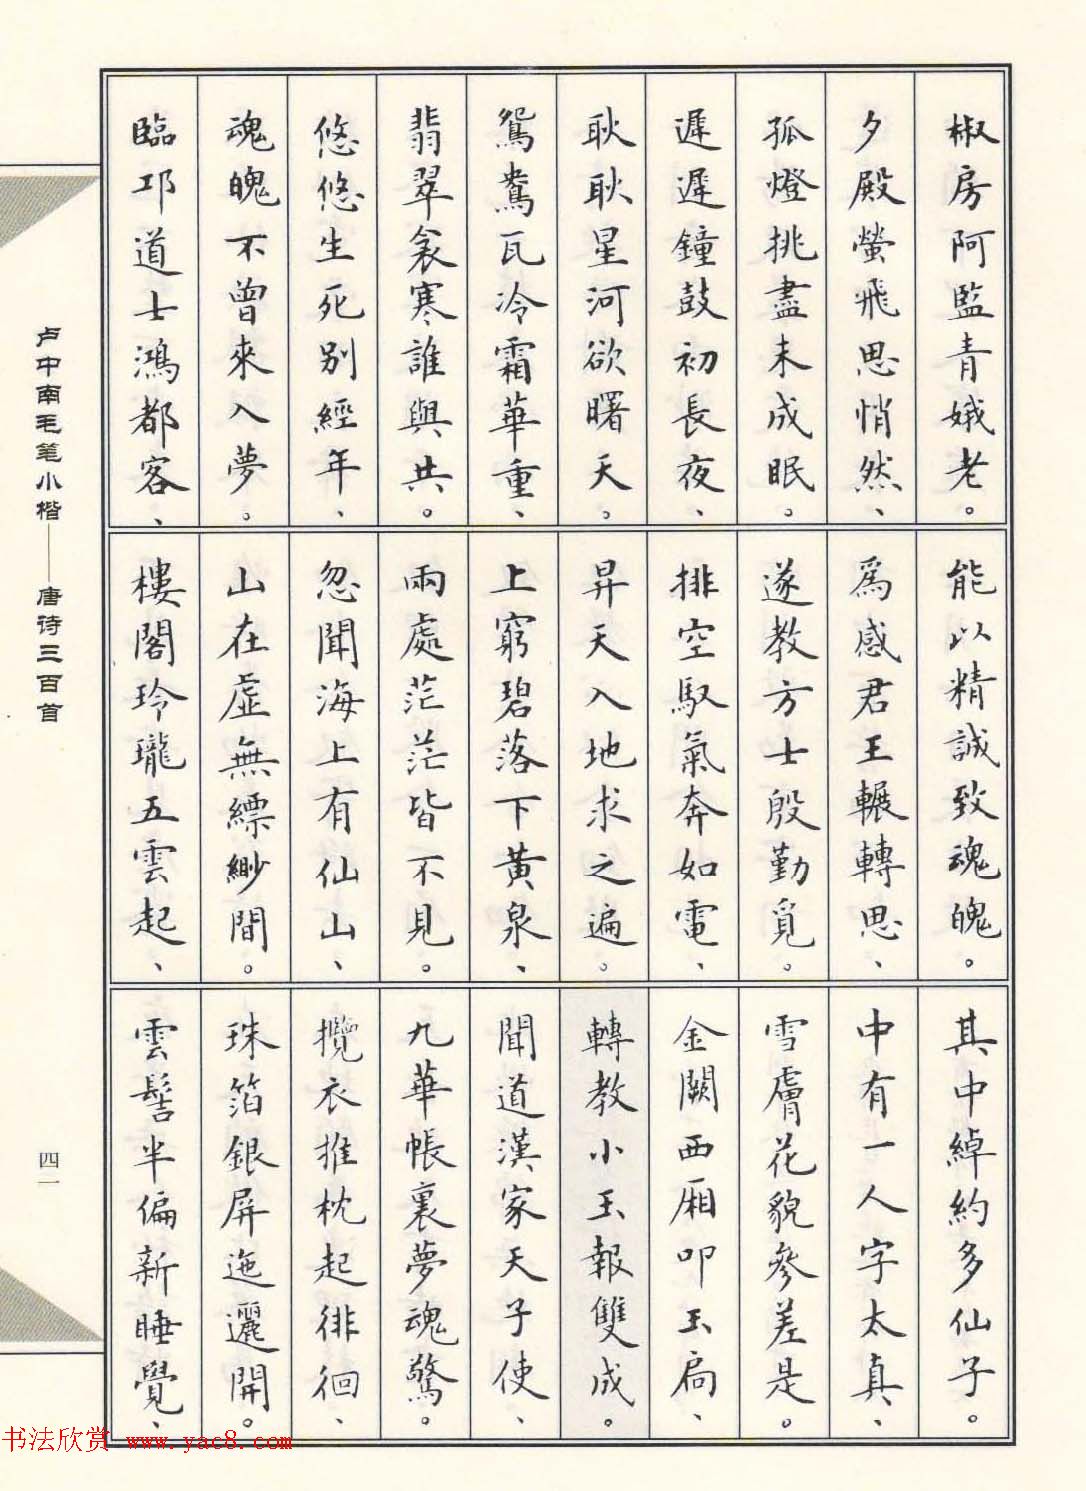 椒房阿監青娥老。
夕殿螢飛思悄然、
孤燈挑盡未成眠。
遲遲鐘鼓初長夜、
耿耿星河欲曙天。
鴛鴦瓦冷霜華重、
翡翠衾寒誰與共。
悠悠生死别經年、
魂魄不曾來入夢。
臨邛道士鴻都客、
能以精誠致魂魄。
爲感君王輾轉思、
遂教方士殷勤覓。
排空馭氣奔如電、
昇天入地求之遍。
上窮碧落下黄泉、
兩處茫茫皆不見。
忽聞海上有仙山、
山在虛無縹緲間。
樓閣玲瓏五雲起、
其中綽約多仙子。
中有一人字太真、
雪膚花貌參差是。
金闕西厢叩玉扃、
轉教小玉報雙成。
聞道漢家天子使、
九華帳裏夢魂驚。
攬衣推枕起徘徊、
珠箔銀屏迤邐開。
雲髻半偏新睡覺、
卢中南毛笔小楷——唐诗三百首
四一
书法欣赏 www.yac8.com